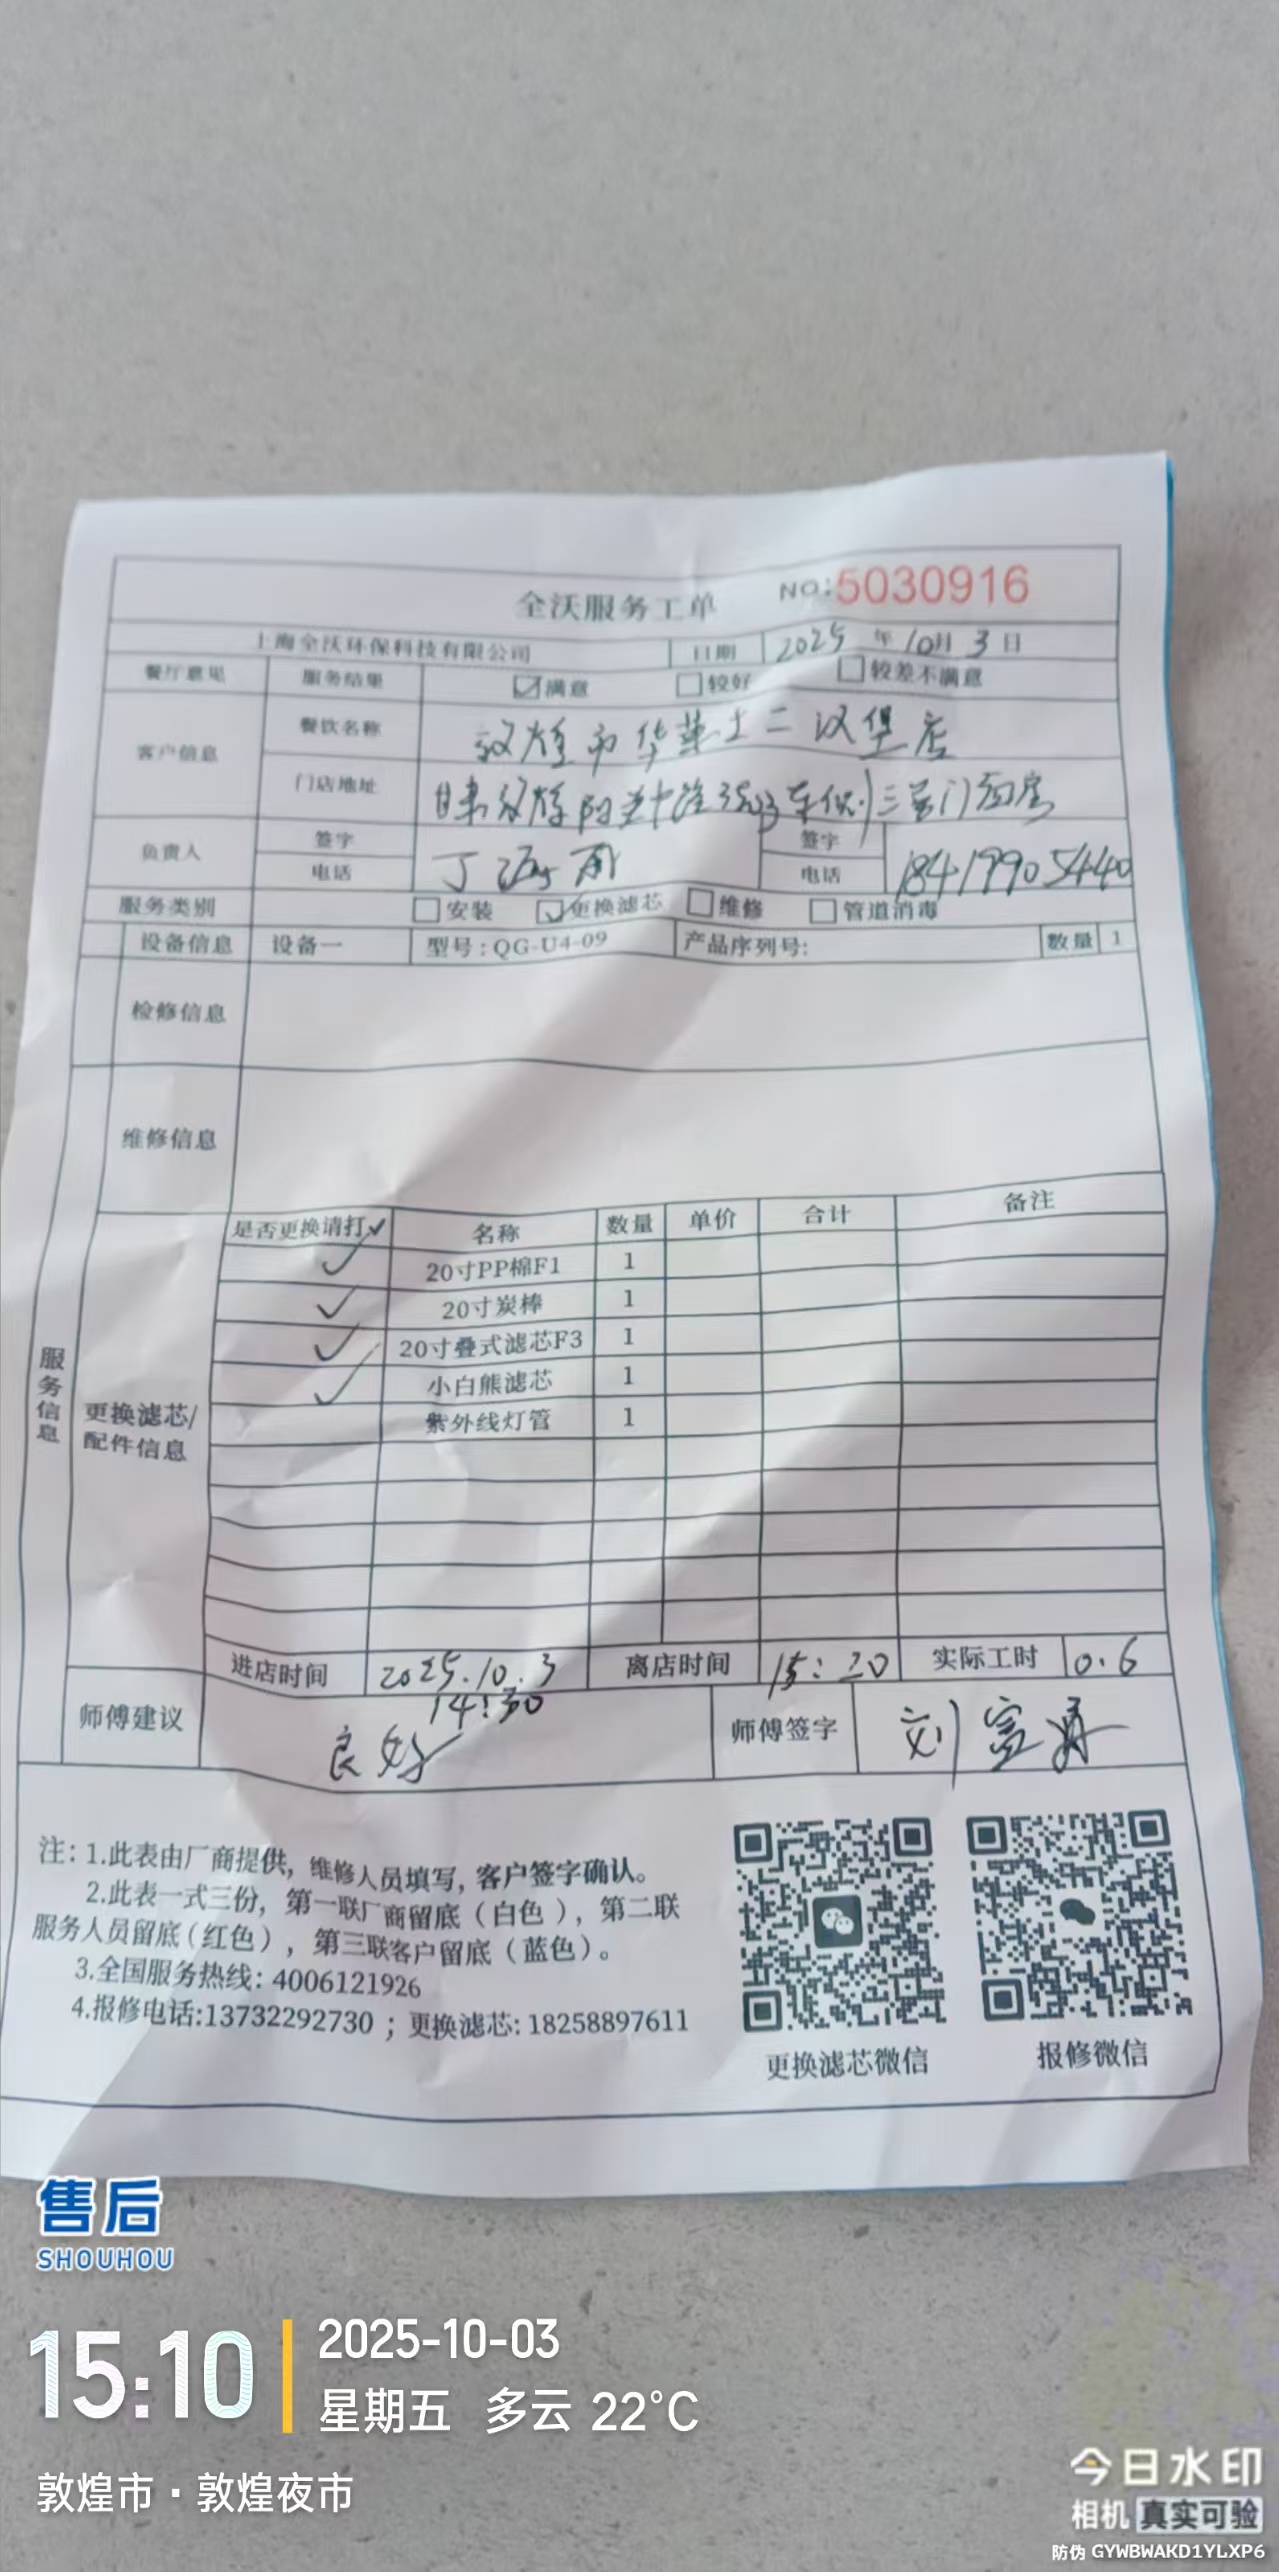 全沃服务工单 NO:5030916
上海全沃环保科技有限公司 日期 2025 年 10月 3 日
餐厅意见 服务结果 满意 较好 较差不满意
客户信息 餐饮名称 敦煌市华莱士二汉堡店
门店地址 甘肃敦煌阳关中路 三号门面房
负责人 签字 丁海雨 签字
电话 电话 18419905440
服务类别 安装 更换滤芯 维修 管道消毒
设备信息 设备一 型号:QG-U4-09 产品序列号: 数量 1
检修信息
维修信息
服务信息
更换滤芯/配件信息
是否更换请打✓ 名称 数量 单价 合计 备注
✓ 20寸PP棉F1 1
✓ 20寸炭棒 1
✓ 20寸叠式滤芯F3 1
✓ 小白熊滤芯 1
紫外线灯管 1
进店时间 2025.10.3 14:30 离店时间 15:20 实际工时 0.6
师傅建议 良好 师傅签字 刘富
注: 1.此表由厂商提供, 维修人员填写, 客户签字确认。
2.此表一式三份, 第一联厂商留底(白色), 第二联
服务人员留底(红色), 第三联客户留底(蓝色)。
3.全国服务热线: 4006121926
4.报修电话:13732292730 ; 更换滤芯: 18258897611
更换滤芯微信 报修微信
售后
SHOUHOU
15:10
2025-10-03
星期五 多云 22°C
敦煌市·敦煌夜市
今日水印
相机 真实可验
防伪 GYWBWAKD1YLXP6